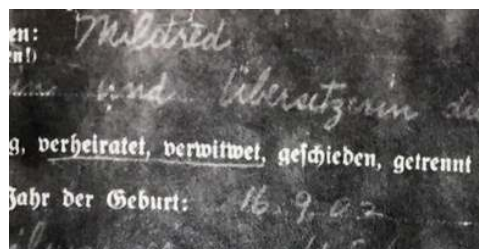 en: Mildred
en!)
und Übersetzerin
g, verheiratet, verwitwet, geschieden, getrennt
Jahr der Geburt: 16. 9. 02